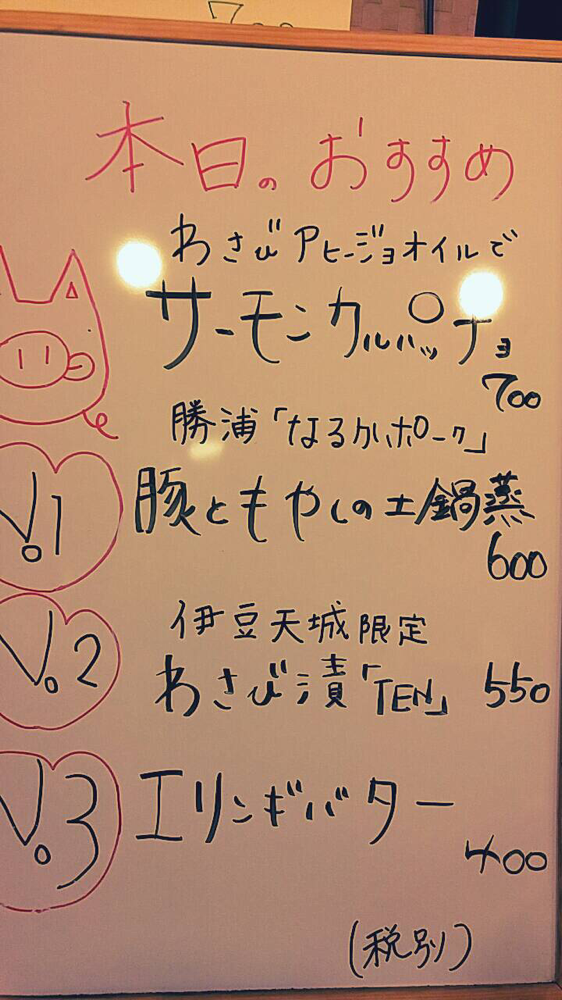 本日のおすすめ
わさびアヒージョオイルで
サーモンカルパッチョ
700
勝浦「なるかポーク」
No.1 豚ともやしの土鍋蒸
600
伊豆天城限定
No.2 わさび漬「TEN」 550
No.3 エリンギバター
400
(税別)